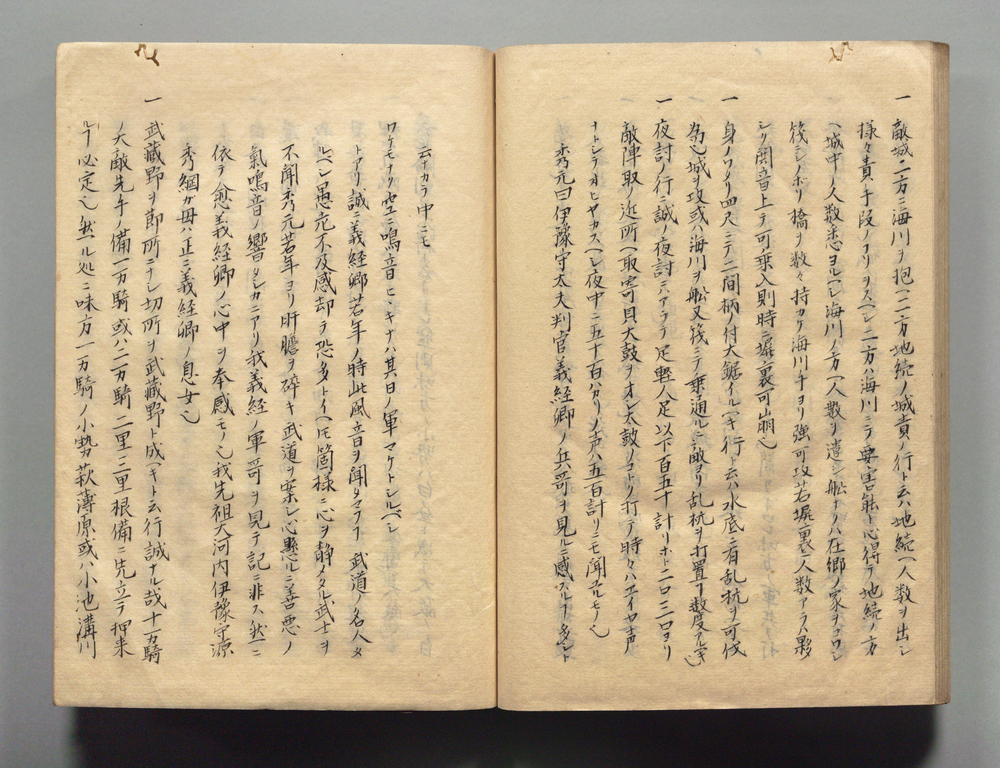 一 敵城二方ニ海川ヲ抱ヘ二方地続ノ城責ノ行ト云ハ地続ヘ人数ヲ出シ
様々責手段ノフリヲスヘシ二方ハ海川ニテ要害能ト心得テ地続ノ方
ヘ城中ノ人数悉ヨルヘシ海川ノ方ヘ人数ヲ遣シ船ナクハ在郷ノ家ヲコワシ
筏シノホリ橋ヲ数々持カケ海川手ヨリ強可攻若塀裏ヘ人数アラハ夥
シク鬨音上テ可乗入則時ニ塀裏可崩也
一 身ノワタリ四尺ニテ二間柄ノ付大鋸イルヘキ行ト云ハ水底ニ有乱杭ヲ可伐
為也城ヲ攻或ハ海川ヲ船又筏ニテ乗通ルニ敵ヨリ乱杭ヲ打置ヿ数度アルヘキ也
一 夜討ノ行ニ誠ノ夜討ニハアラテ足軽人足以下百五十計リホト二口三口ヨリ
敵陣取ノ近所ヘ取寄貝大鼓ヲ太鼓ノコトク打テ時々ハエイヤ声
ナトシテオヒヤカスヘシ夜中ニ五十百ハカリノ声ハ五百計リニモ聞ユルモノ也
秀元曰伊豫守太夫判官義経郷ノ兵哥ヲ見ルニ感スルヿ多シト
云ナカラ中ニモ
ワケモナク空ニ鳴音ヒヽキナハ其日ノ軍マケトシルベシ
トアリ誠ニ義経郷若年ノ時此風音ヲ聞タマフヿ武道ノ名人タ
ルベシ愚在不及感却テ恐多トイヘ𪜈箇様ニ心ヲ静メタル武士ヲ
不聞秀元若年ヨリ肝膽ヲ碎キ武道ヲ案シ心懸ルニ善悪ノ
氣鳴音ノ響タシカニアリ我義経ノ軍哥ヲ見テ記ニ非ス然ニ
依テ愈義経卿ノ心中ヲ奉感モノ也我先祖大河内伊豫守源
秀綱カ母ハ正ニ義経卿ノ息女也
一 武蔵野ヲ即所ニナシ切所ヲ武蔵野ト成ヘキト云行誠ナル哉十万騎
ノ大敵先手ノ備一万騎或ハ二万騎二里三里根備ニ先立テ押来
ルヿ必定也然ル処ニ味方一万騎ノ小勢萩薄原或ハ小池溝川